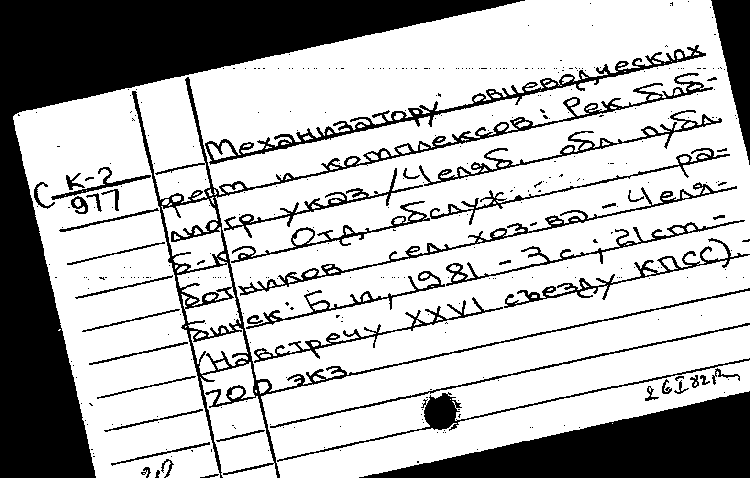 Механизатору овцеводческих
С К-2
977
ферм и комплексов: Рек. биб-
лиогр. указ./Челяб. обл. публ.
б-ка. Отд. обслуж. ра-
ботников сел. хоз-ва. - Челя-
бинск: Б. и., 1981. - 3 с.; 21 см. -
(Навстречу XXVI съезду КПСС). -
200 экз.
26 I 82